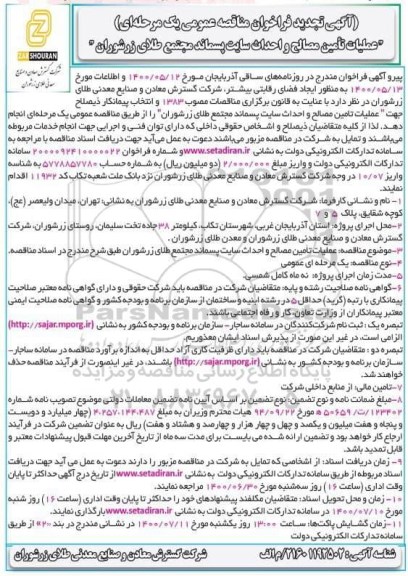 (آگهی تجدید فراخوان مناقصه عمومی یک مرحله‌ای)
"عملیات تأمین مصالح و احداث سایت پسماند مجتمع طلای زرشوران"
ZARSHOURAN
شرکت گسترش معادن و صنایع
معدنی طلای زرشوران
پیرو آگهی فراخوان مندرج در روزنامه‌های ساقی آذربایجان مورخ ۱۴۰۰/۰۵/۱۲ و اطلاعات مورخ
۱۴۰۰/۰۵/۱۳ به منظور ایجاد فضای رقابتی بیشتر، شرکت گسترش معادن و صنایع معدنی طلای
زرشوران در نظر دارد با عنایت به قانون برگزاری مناقصات مصوب ۱۳۸۳ و انتخاب پیمانکار ذیصلاح
جهت " عملیات تامین مصالح و احداث سایت پسماند مجتمع طلای زرشوران" را از طریق مناقصه عمومی یک مرحله‌ای انجام
دهد. لذا از کلیه متقاضیان ذیصلاح و اشخاص حقوقی داخلی که دارای توان فنی و اجرایی جهت انجام خدمات مربوطه
می‌باشند و تمایل به شرکت در مناقصه مزبور می‌باشند دعوت به عمل می‌آید جهت دریافت اسناد مناقصه با مراجعه به
سامانه تدارکات الکترونیکی دولت به نشانی www.setadiran.ir و شماره فراخوان ۲۰۰۰۰۹۲۴۱۰۰۰۰۰۲۲ سامانه
تدارکات الکترونیکی دولت و واریز مبلغ ۲/۰۰۰/۰۰۰ (دو میلیون ریال) به شماره حساب ۵۷۷۸۸۵۷۷۸۰ به شناسه
واریز ۱۰/۰۷ در وجه شرکت گسترش معادن و صنایع معدنی طلای زرشوران نزد بانک ملت شعبه تکاب کد ۱۱۹۳۲ اقدام
نمایند.
۱- نام و نشانی کارفرما: شرکت گسترش معادن و صنایع معدنی طلای زرشوران به نشانی: تهران، میدان ولیعصر (عج)،
کوچه شقایق، پلاک ۵ و ۷
۲-محل اجرای پروژه: استان آذربایجان غربی، شهرستان تکاب، کیلومتر ۳۸ جاده تخت سلیمان، روستای زرشوران، شرکت
گسترش معادن و صنایع معدنی طلای زرشوران و معدن طلای زرشوران .
۳-موضوع مناقصه: عملیات تامین مصالح و احداث سایت پسماند مجتمع طلای زرشوران طبق شرح مندرج در اسناد مناقصه.
۴-نوع مناقصه: یک مرحله ای عمومی
۵-مدت زمان اجرای پروژه: نه ماه کامل شمسی.
۶-گواهی نامه صلاحیت رشته و پایه: متقاضیان شرکت در مناقصه باید شرکت حقوقی و دارای گواهی نامه معتبر صلاحیت
پیمانکاری با رتبه (گرید) حداقل ۵ در رشته ابنیه و ساختمان از سازمان برنامه و بودجه کشور و گواهی نامه صلاحیت ایمنی
معتبر پیمانکاران از وزارت تعاون، کار و رفاه اجتماعی باشند.
تبصره یک : ثبت نام شرکت‌کنندگان در سامانه ساجار- سازمان برنامه و بودجه کشور به نشانی (http://sajar.mporg.ir)
الزامی است، در غیر این صورت از پذیرش اسناد ایشان معذوریم.
تبصره دو : متقاضیان شرکت در مناقصه باید دارای ظرفیت کاری آزاد حداقل به اندازه برآورد مناقصه در سامانه ساجار-
سازمان برنامه و بودجه کشور به نشانی (http://sajar.mporg.ir) باشند، در غیر اینصورت از فرآیند مناقصه حذف
خواهند شد.
۷-تامین مالی: از منابع داخلی شرکت
۸-مبلغ ضمانت نامه و نوع تضمین: نوع تضمین بر اساس آیین نامه تضمین معاملات دولتی موضوع تصویب نامه شماره
۱۲۳۴۰۲/ت ۵۰۶۵۹ ه مورخ ۹۴/۰۹/۲۲ هیات محترم وزیران به مبلغ ۴.۲۵۷.۱۴۴.۴۸۷ (چهار میلیارد و دویست
و پنجاه و هفت میلیون و یکصد و چهل و چهار هزار و چهارصد و هشتاد و هفت) ریال به عنوان تضمین شرکت در فرآیند
ارجاع کار خواهد بود و تضمین ارائه شده می بایست برای مدت سه ماه از تاریخ آخرین مهلت قبول پیشنهادات معتبر و
قابل تمدید باشد.
۹- زمان دریافت اسناد: از اشخاصی که تمایل به شرکت در مناقصه مزبور را دارند دعوت به عمل می آید جهت دریافت
اسناد مربوطه از طریق سامانه تدارکات الکترونیکی دولت به نشانی www.setadiran.ir از تاریخ درج آگهی حداکثر تا پایان
وقت اداری (ساعت ۱۶) روز سه‌شنبه مورخ ۱۴۰۰/۰۶/۳۰ مراجعه نمایند.
۱۰- زمان و محل تحویل اسناد: متقاضیان مکلفند پیشنهادهای خود را حداکثر تا پایان وقت اداری (ساعت ۱۶) روز شنبه
مورخ ۱۴۰۰/۰۷/۱۰ در سامانه تدارکات الکترونیکی دولت به نشانی www.setadiran.ir بارگذاری نمایند.
۱۱- زمان گشایش پاکت‌ها: ساعت ۱۳:۰۰ روز یکشنبه مورخ ۱۴۰۰/۰۷/۱۱ در نشانی مندرج در بند «۲» از طریق
سامانه تدارکات الکترونیکی دولت به نشانی www.setadiran.ir
شناسه آگهی: ۱۱۹۳۵۰۲ /۲۱۶۰ م الف
شرکت گسترش معادن و صنایع معدنی طلای زرشوران